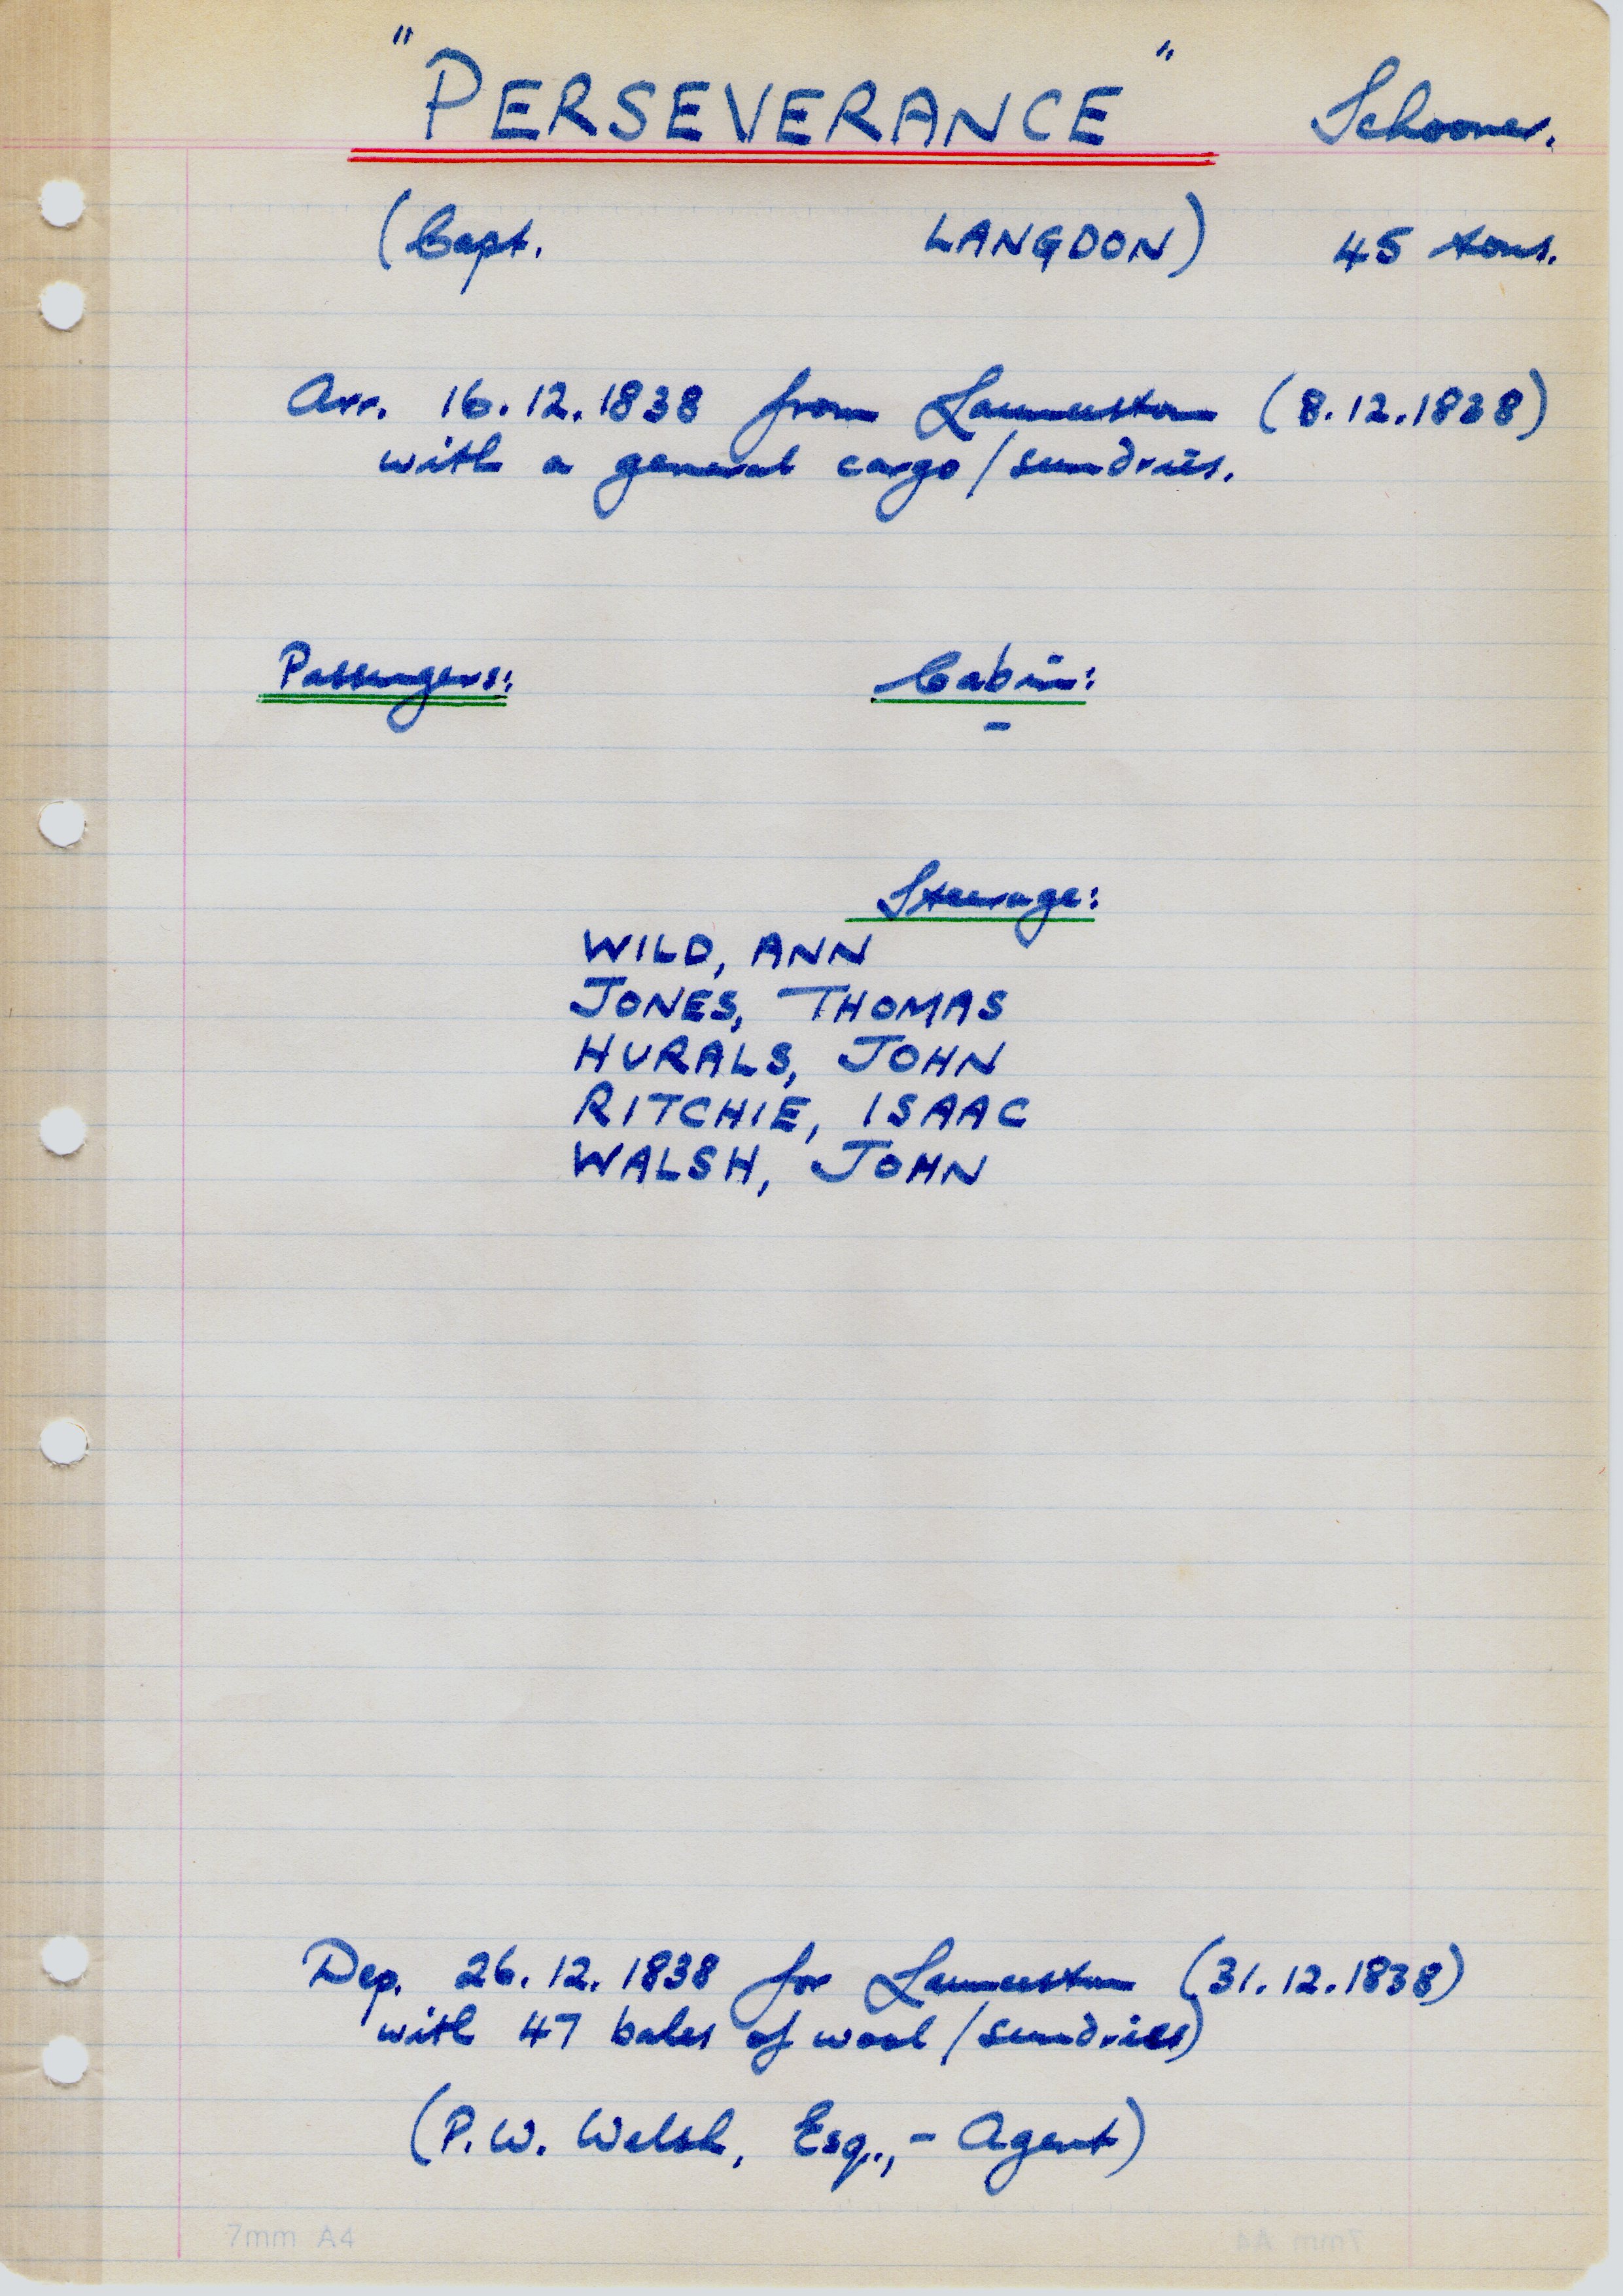 "PERSEVERANCE" Schooner.
(Capt. LANGDON) 45 tons.
Arr. 16.12.1838 from Launceston (8.12.1838)
with a general cargo/sundries.
Passengers: Cabin:
-
Steerage:
WILD, ANN
JONES, THOMAS
HURALS, JOHN
RITCHIE, ISAAC
WALSH, JOHN
Dep. 26.12.1838 for Launceston (31.12.1838)
with 47 bales of wool/sundries)
(P.W. Welsh, Esq.,- Agent)
7mm A4